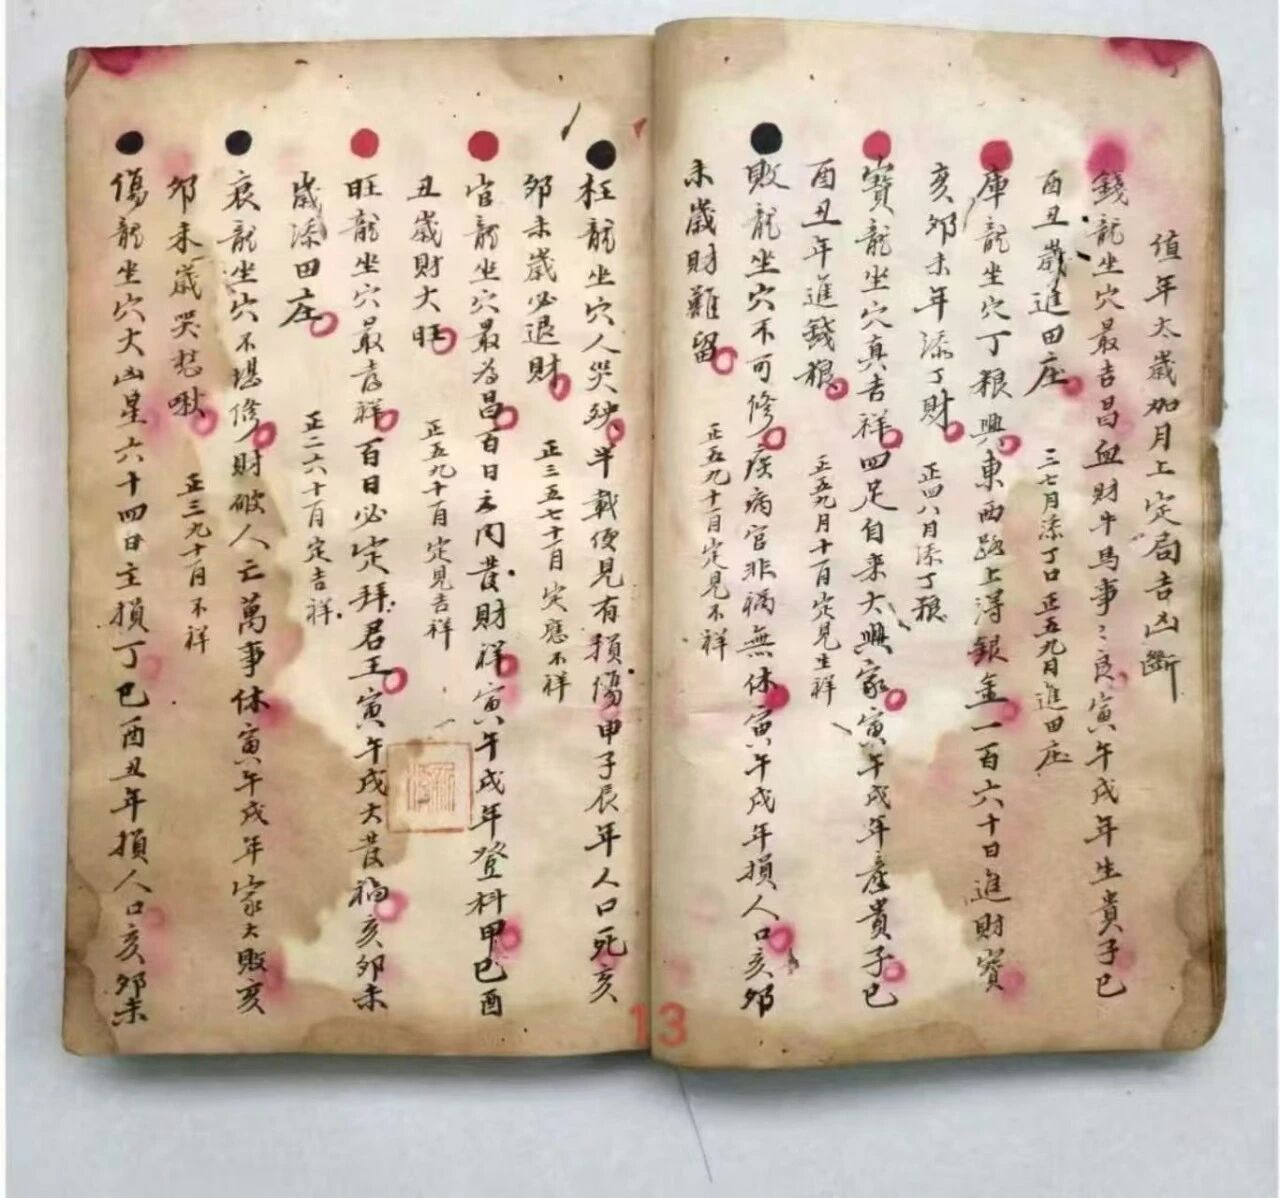 值年太歲加月上定局吉凶斷
錢龍坐穴最吉昌血財牛馬事〻良寅午戌年生貴子巳
酉丑歲進田庄 三七月添丁口正五九月進田庄
庫龍坐穴丁粮興東西路上得銀金一百六十日進財寶
亥卯未年添丁財 正四八月添丁粮
寶龍坐穴真吉祥四足自来大興家寅午戌年產貴子巳
酉丑年進錢粮 正五九月十一月定見生祥
敗龍坐穴不可修疾病官非禍無休寅午戌年損人口亥卯
未歲財難留 正五九十一月定見不祥
枉龍坐穴人哭殃半載便見有損傷甲子辰年人口死亥
卯未歲必退財 正三五七十一月定應不祥
官龍坐穴最為昌百日之内發財祥寅午戌年登科甲巳酉
丑歲財大旺 正五九十一月定見吉祥
旺龍坐穴最吉祥百日必定拜君王寅午戌大發福亥卯未
歲添田庄 正二六十一月定吉祥
衰龍坐穴不堪修財破人亡萬事休寅午戌年家大敗亥
卯未歲哭愁啾 正三九十一月不祥
傷龍坐穴大凶星六十四日主損丁巳酉丑年損人口亥卯未
13